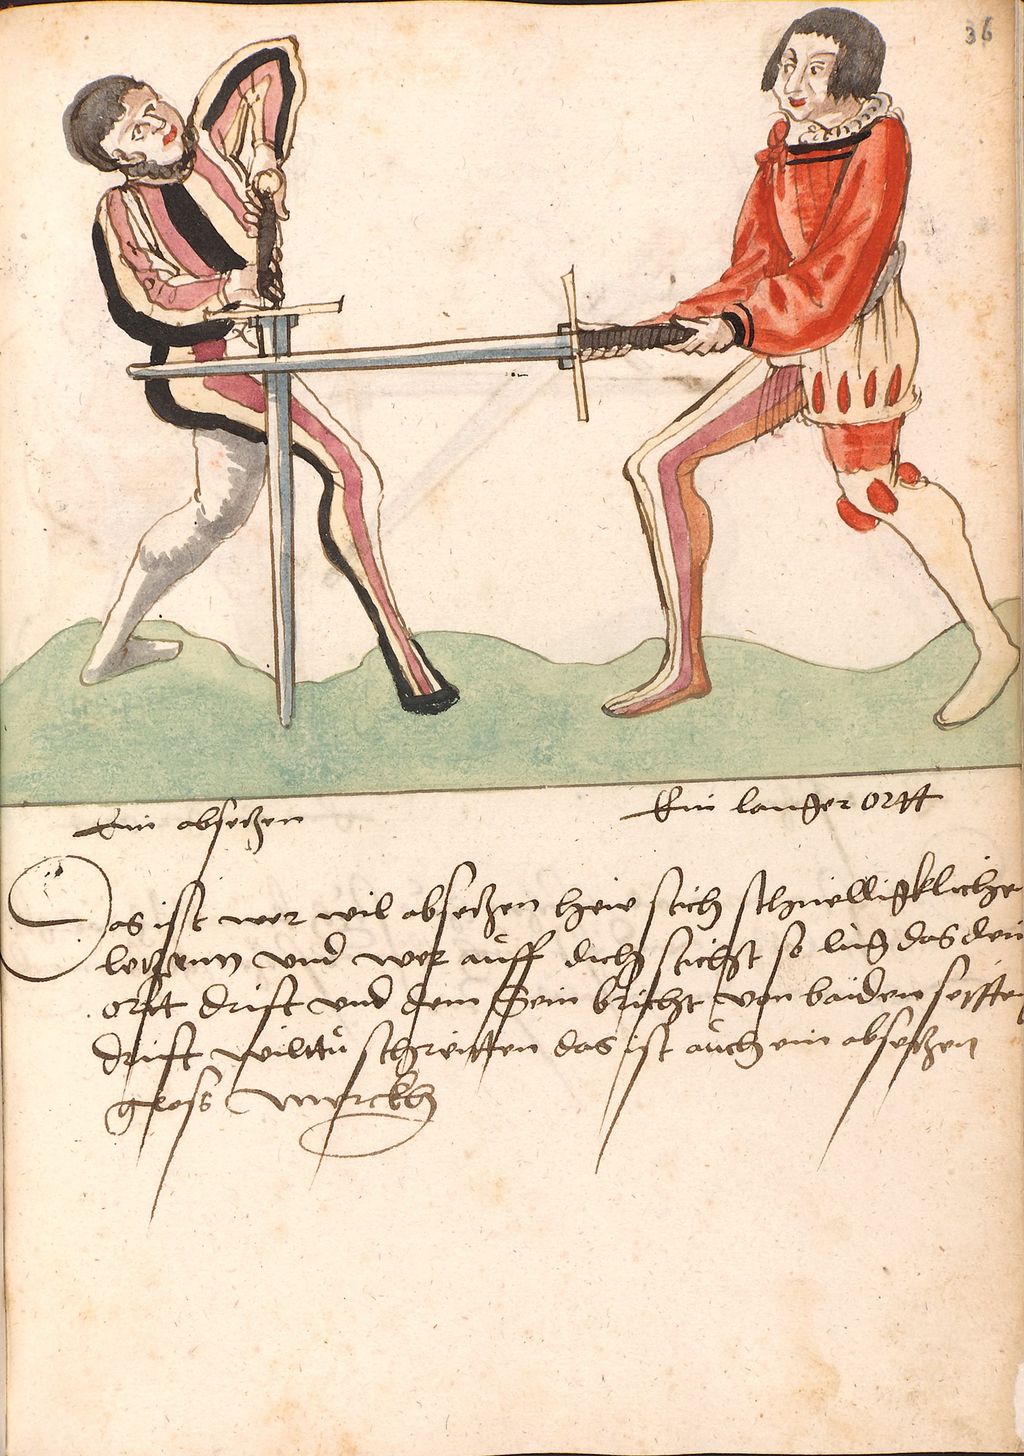 36
Ein absetzen
Ein langer ortt
Das isst wer wil absetzen hew stich schnelligkliche
letzenn vnd wer aúff dich sticht so lúg das dein
ortt drift vnd dem sein bricht von baiden seitten
drift wilttu schreitten das ist aúch ein absetzen
gross merckh